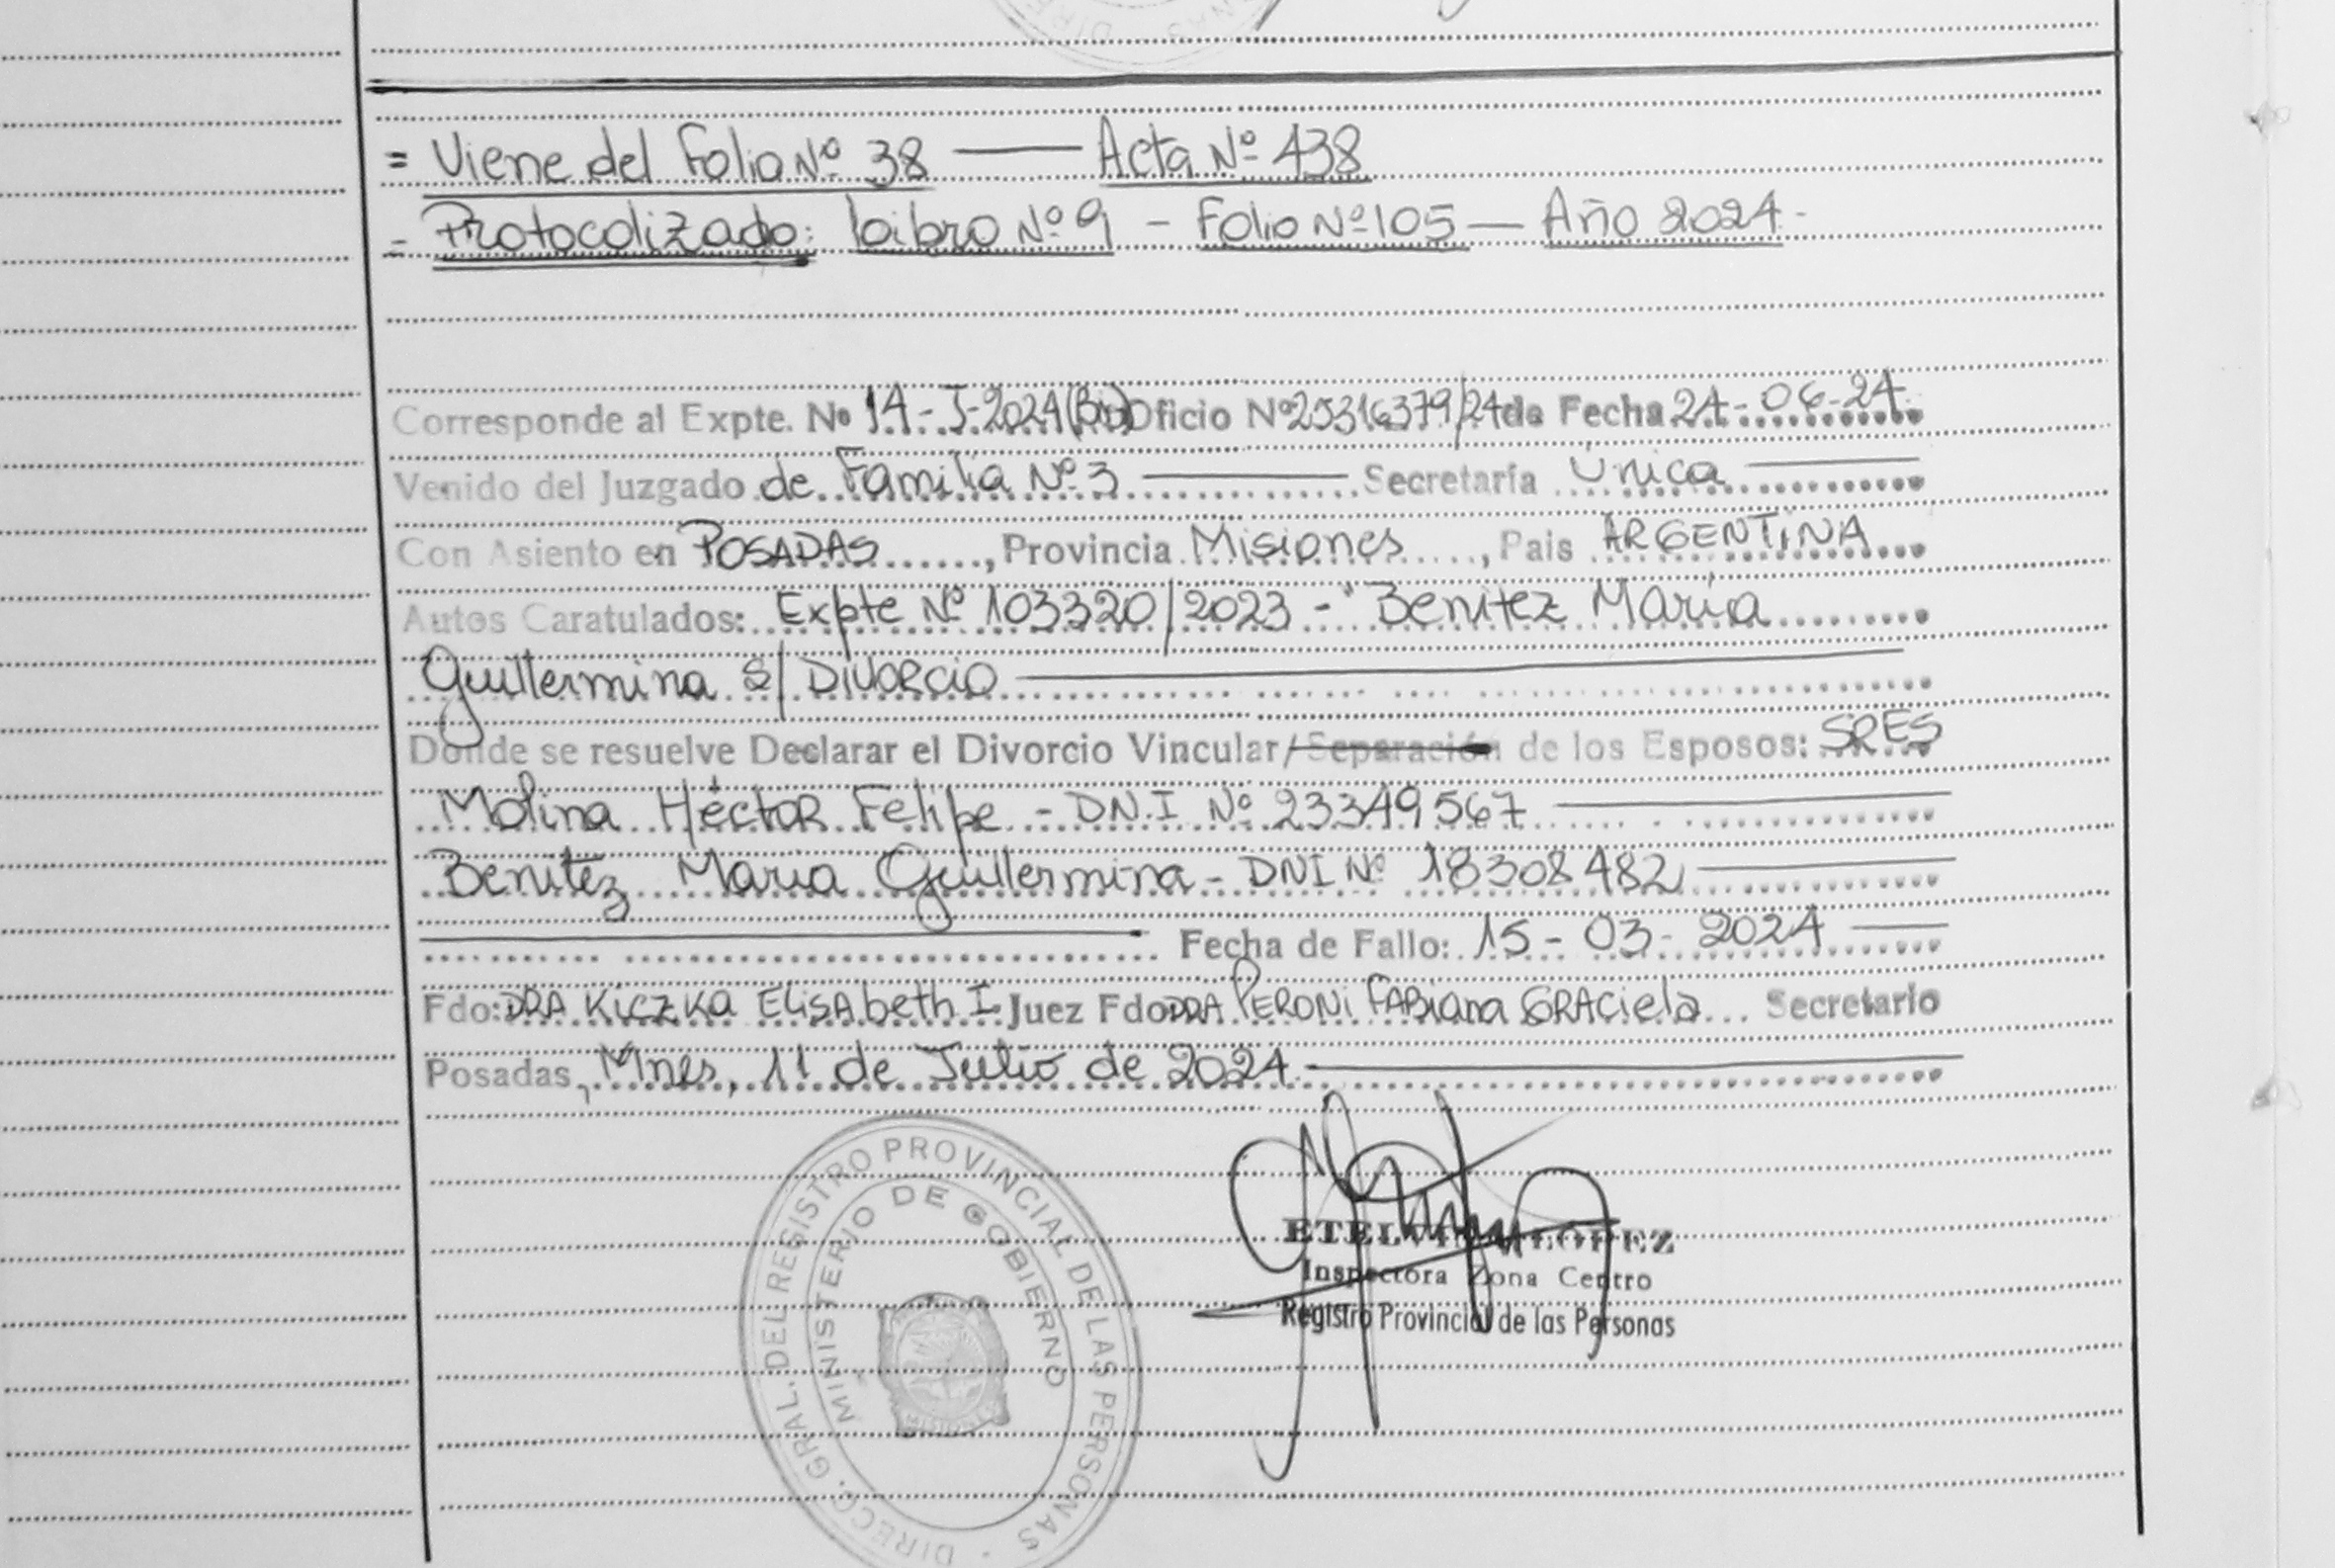 = Viene del Folio Nº 38 — Acta Nº 438
= Protocolizado: Libro Nº 9 - Folio Nº 105 — Año 2024.-
Corresponde al Expte. Nº 14-J-2024 (Bis) Oficio Nº 25316379/24 de Fecha 24-06-24.
Venido del Juzgado de Familia Nº 3 — Secretaría Única —
Con Asiento en POSADAS, Provincia Misiones, Pais ARGENTINA
Autos Caratulados: Expte Nº 103320/2023 - " Benitez María
Guillermina S/ Divorcio —
Donde se resuelve Declarar el Divorcio Vincular/Separación de los Esposos: SRES
Molina Héctor Felipe - DN.I Nº 23349567 —
Benitez Maria Guillermina - DNI Nº 18308482 —
— Fecha de Fallo: 15 - 03 - 2024 —
Fdo: DRA Kiczka Elisabeth I. Juez Fdo DRA PERONI FABiana GRACiela Secretario
Posadas, Mnes, 11 de Julio de 2024. —
DIRECC. GRAL. DEL REGISTRO PROVINCIAL DE LAS PERSONAS
MINISTERIO DE GOBIERNO
MISIONES
LOPEZ
Inspectora Zona Centro
Registro Provincial de las Personas